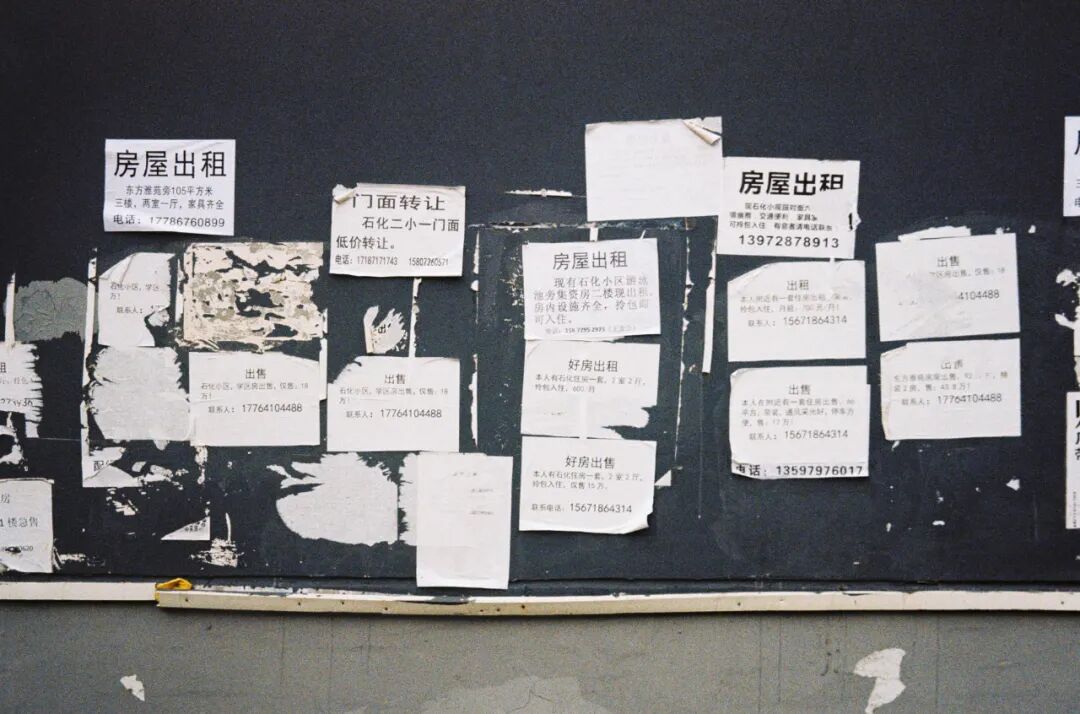 房屋出租
东方雅苑旁105平方米
三楼,两室一厅,家具齐全
电话:17786760899
门面转让
石化二小一门面
低价转让。
电话:17187171743 15807260571
房屋出租
交通便利 家具
可拎包入住 有意者请电话联系
13972878913
房屋出租
现有石化小区游泳
池旁集资房二楼现出租,
房内设施齐全,拎包即
可入住。
出租
本人附近有一套住房出租
入住,月租:700元/月!
联系人:15671864314
出售
学区房出售,仅售:18
64104488
石化小区,学区
万!
联系人:
出售
石化小区,学区房出售,仅售:18
万!
联系人:17764104488
出售
石化小区,学区房出售,仅售:18
万!
联系人:17764104488
好房出租
本人有石化住房一套,2室2厅,
拎包入住,600月
出售
本人在附近有一套住房出售,
平方,简装,通风采光好,停车方
便,售:17万!
联系人:15671864314
电话:13597976017
出售
东方雅苑房屋出售
装2房,售:43.8万!
联系人:17764104488
好房出售
本人有石化住房一套,2室2厅,
拎包入住,仅售15万。
联系电话:15671864314
租
房
楼急售